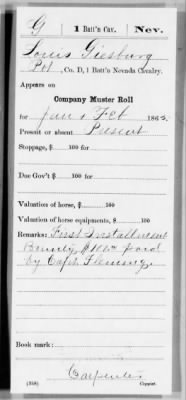 G | 1 Batt'n Cav. | Nev.
Louis Giesburg
Pvt, Co. D, 1 Batt'n Nevada Cavalry.
Appears on
Company Muster Roll
for Jan & Feb, 1865.
Present or absent Present
Stoppage, $ 100 for
Due Gov't $ 100 for
Valuation of horse, $ 100
Valuation of horse equipments, $ 100
Remarks: First Installment
Bounty $ paid
by Capt. Fleming.
Book mark:
Carpenter
(358) Copyist.